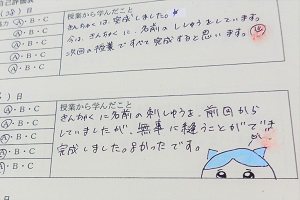 自己評価
(28) 日
Ⓐ・B・C
Ⓐ・B・C
Ⓐ・B・C
Ⓐ・B・C
授業から学んだこと
きんちゃくは完成しました。
今は、きんちゃくに、名前のししゅうをしています。
次回の授業ですべて完成すると思います。
) 日
Ⓐ・B・C
Ⓐ・B・C
Ⓐ・B・C
Ⓐ・B・C
授業から学んだこと
きんちゃくに名前の刺しゅうを、前回から
していましたが、無事に縫うことができ
完成しました。よかったです。
日